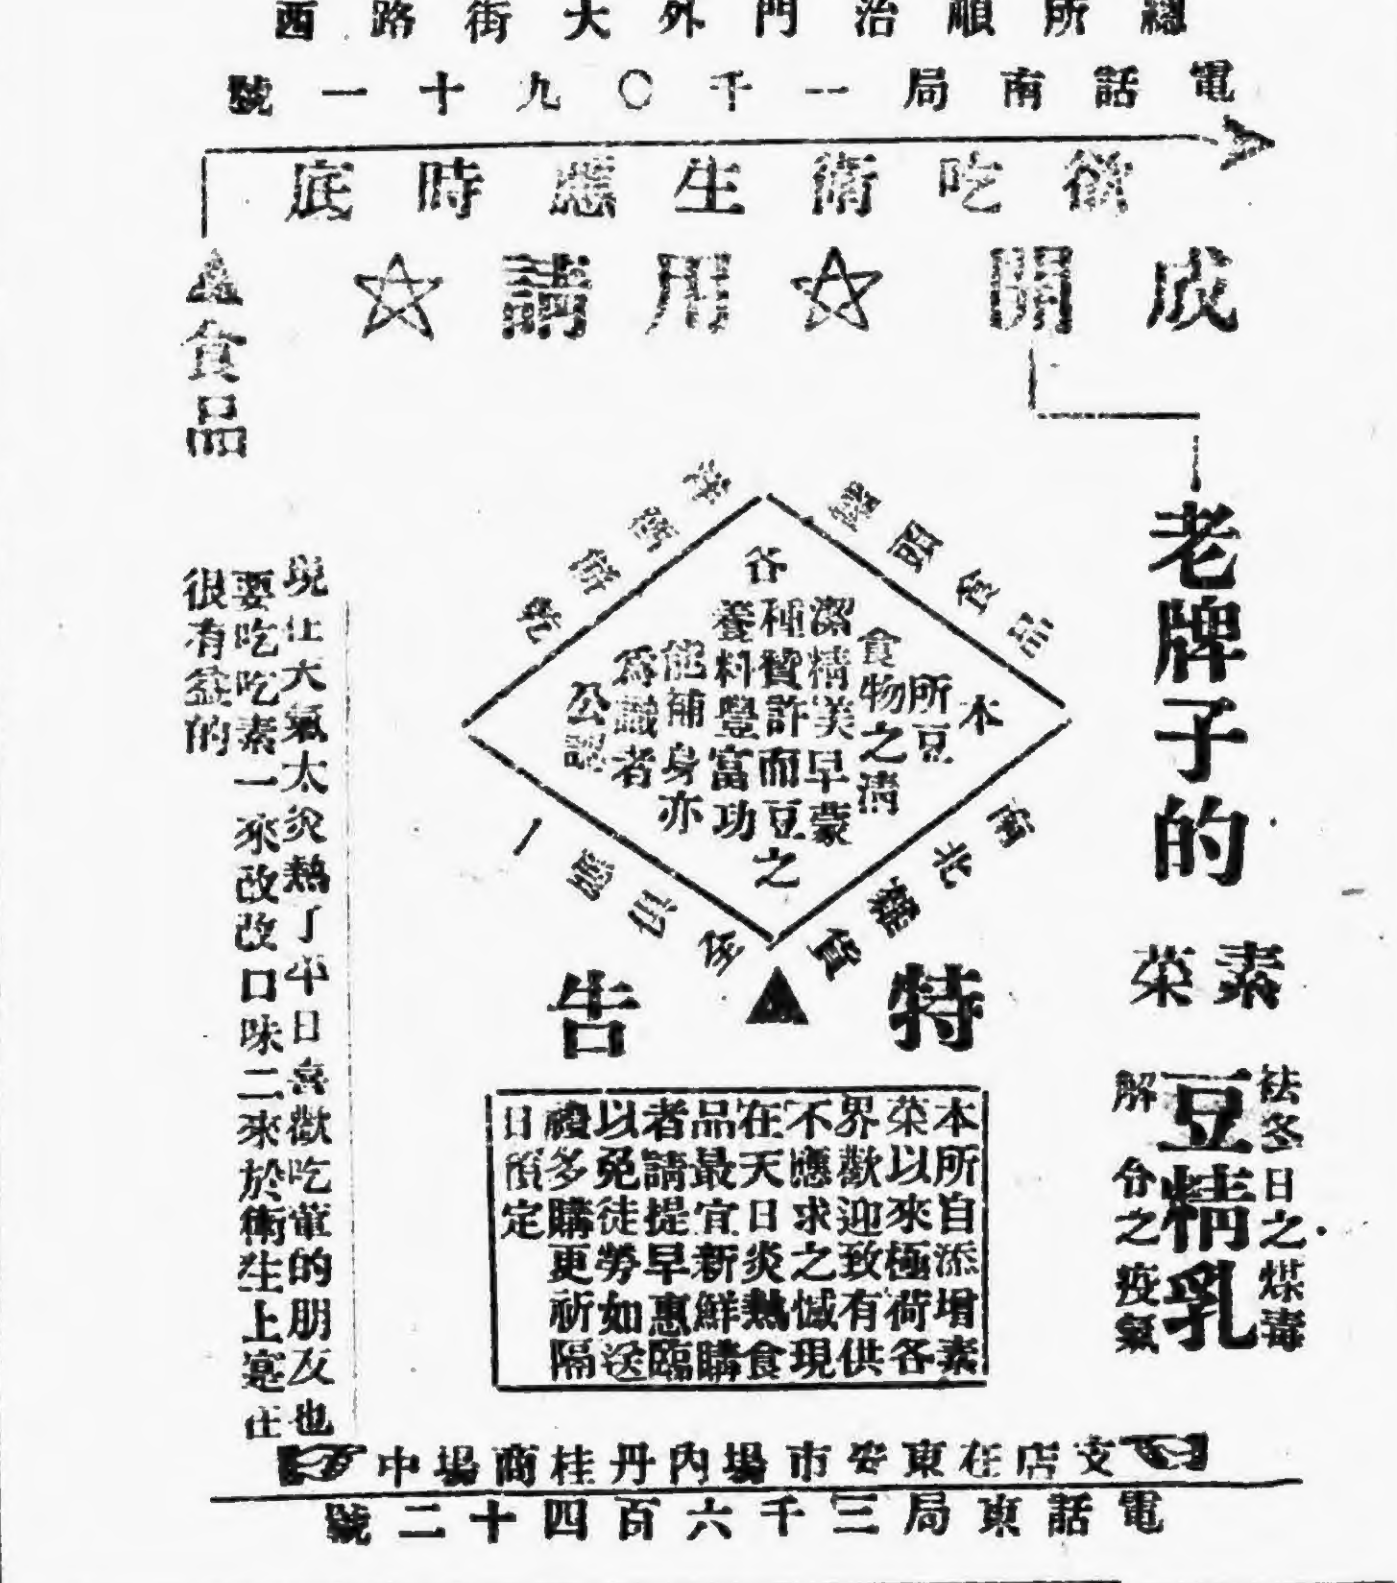 總所順治門外大街路西
電話南局一千〇九十一號
欲吃衛生應時底
食品
成開☆用請☆
老牌子的
素菜
豆精乳
祛冬日之煤毒
解 分之疫氣
罐頭食品
本
所豆
食物之清
潔精美早蒙
各種贊許而豆之
養料豐富功
能補身亦
為識者
公認
特告
本所自添增素
菜以來極荷各
界歡迎致有供
不應求之憾現
在天日炎熱食
品最宜新鮮購
者請提早惠臨
以免徒勞如送
禮多購更祈隔
日預定
現在天氣太炎熱了平日喜歡吃葷的朋友也
要吃吃素一來改改口味二來於衛生上寔在
很有益的
支店在東安市場內丹桂商場中
電話東局三千六百四十二號